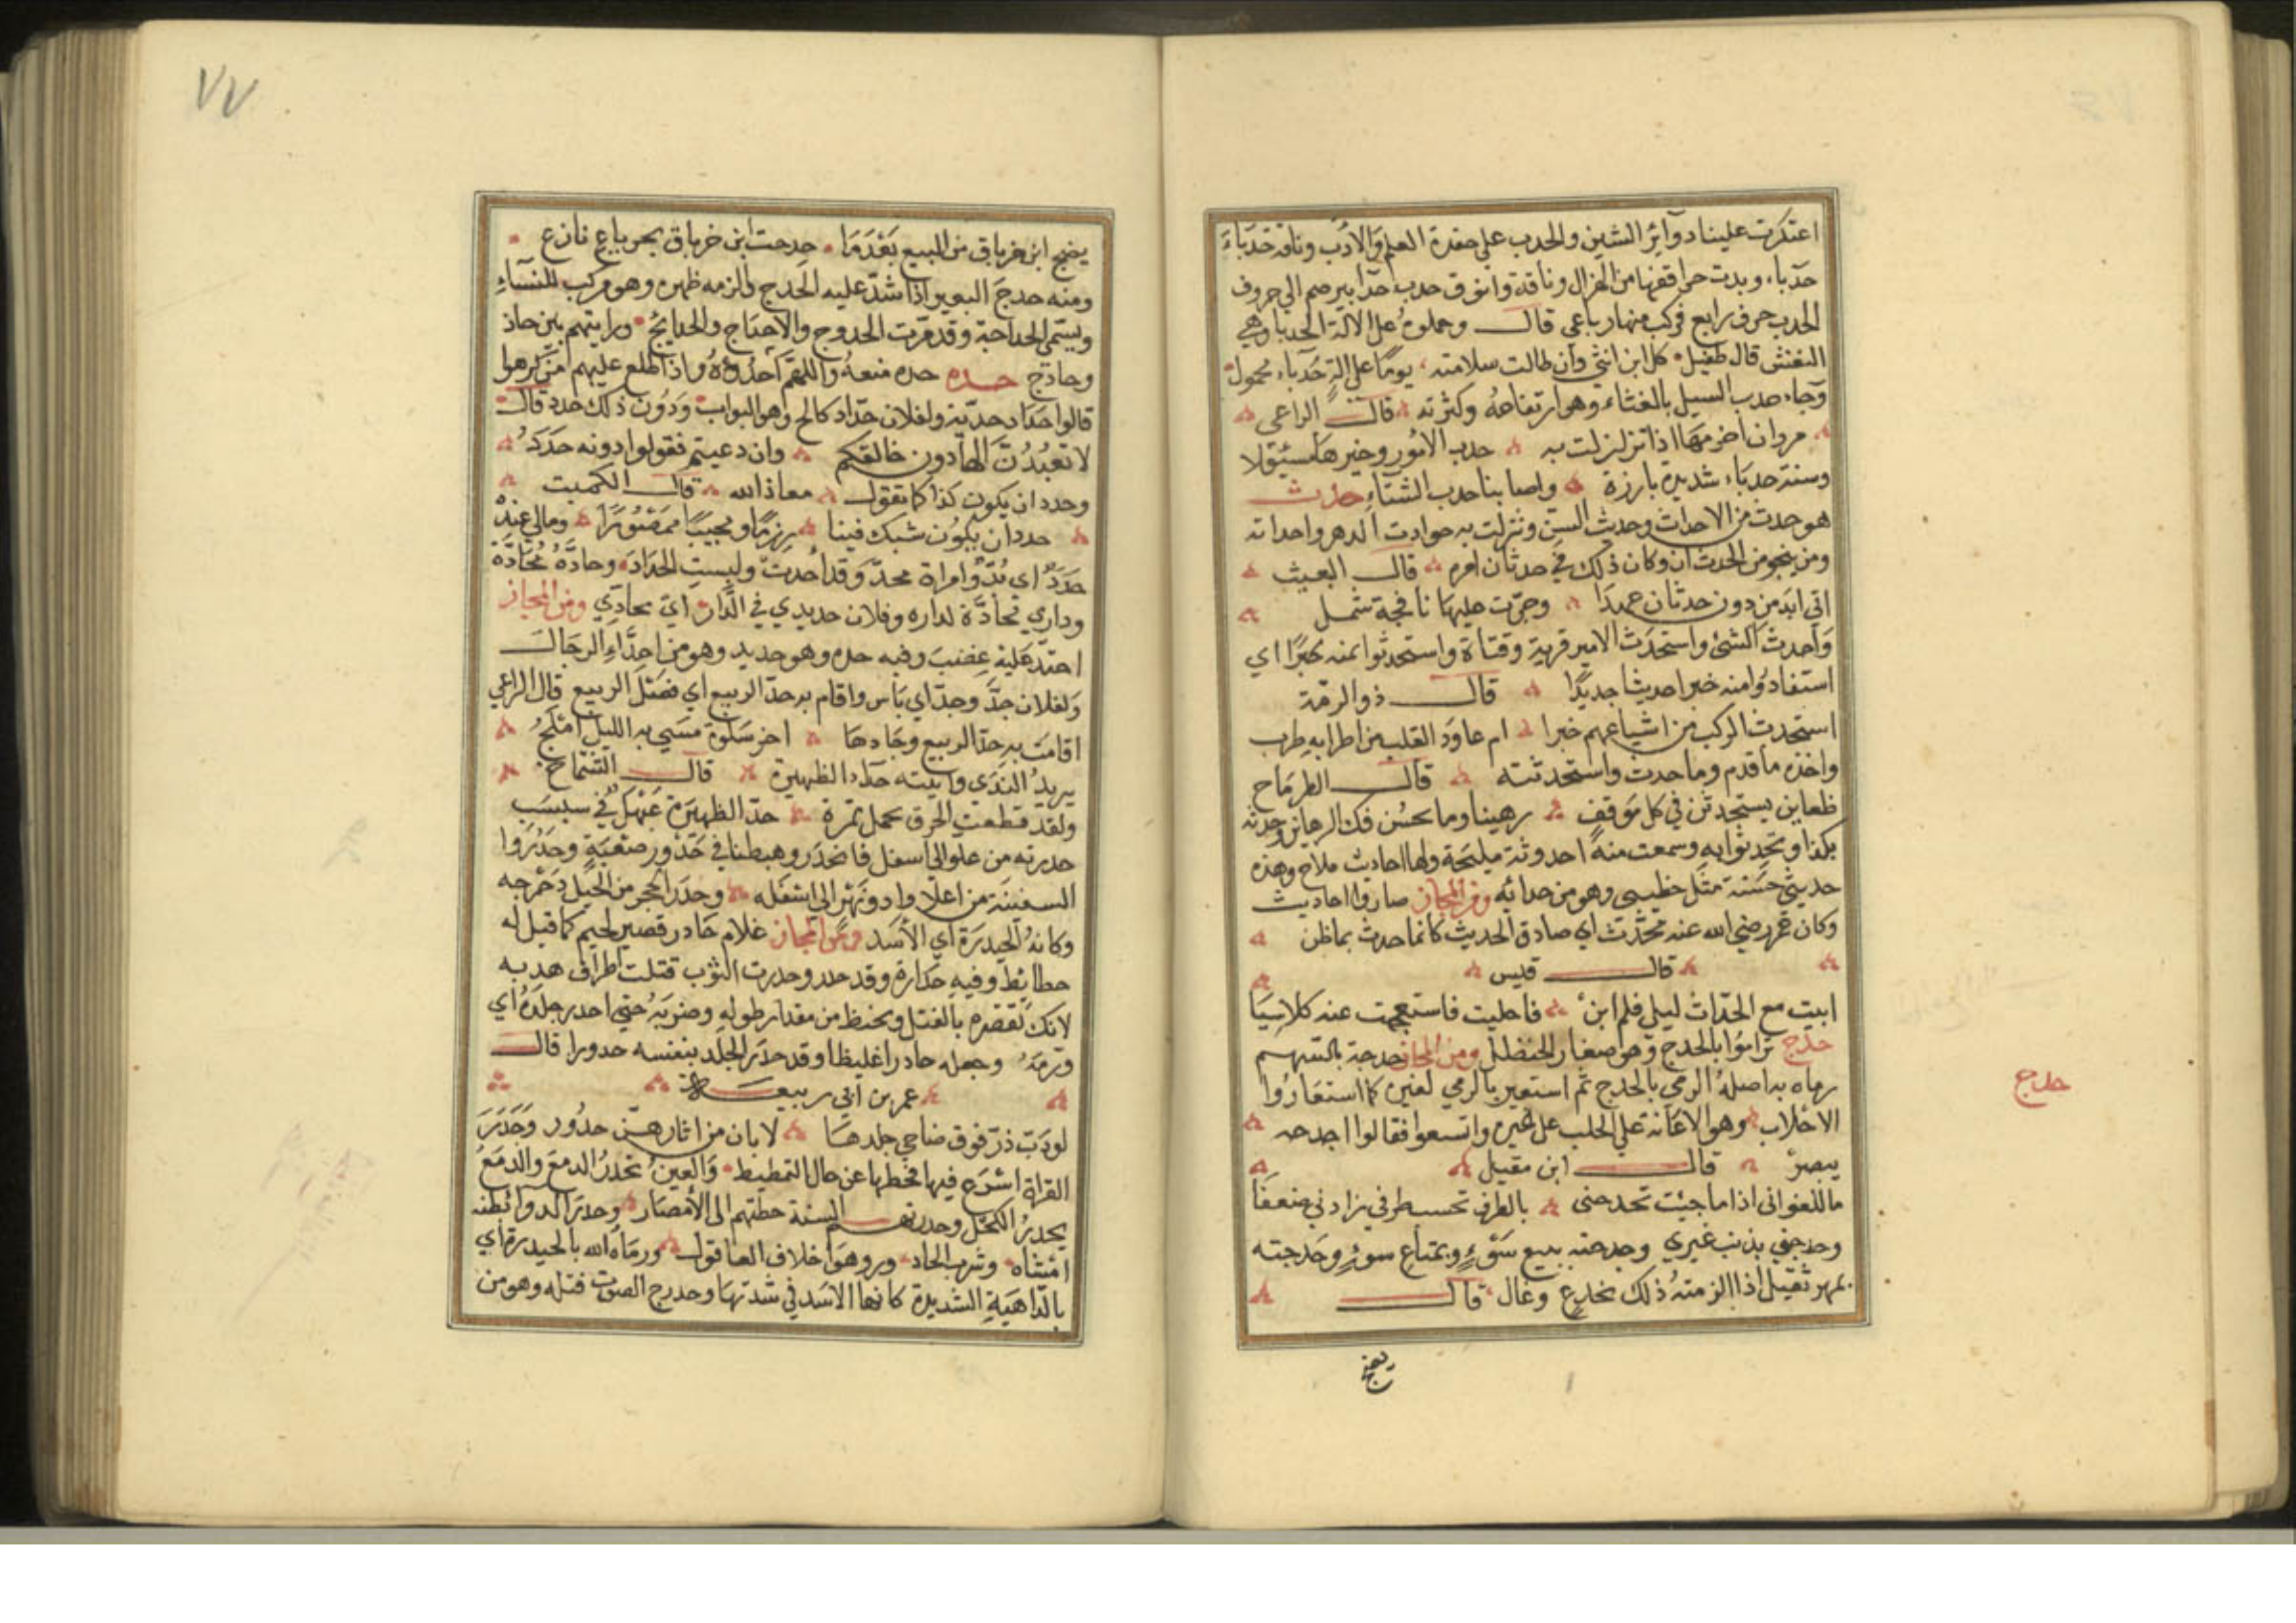 اعتكرت علينا دوآئر الشين والحدب على حفدة العلم والادب وناقه حدباء
حدباء وبدت حراقفها من الهزال وناقة وانوق حدب حدابير ضم الى حروف
الحدب حرف رابع فركب منها رباعى قالـــ وحملوه على الالة الحدبا وهي
النعش قال طفيل كل ابن انثى وان طالت سلامته يومًا على الةٍ حدباء محمول
وجاء حدب السيل بالغثاء وهو ارتفاعه وكثرته قالـــ الراعى
مروان احزمها اذا نزلت به حدب الامور وخيرها مسئولا
وسنة حدباء شديدة بارزة واصابنا حدب الشتاء حدث
هو حدث من الاحداث وحدث السن ونزلت به حوادث الدهر واحداثه
ومن ينجو من الحدثان وكان ذلك في حدثان امره قالـــ البعيث
اتى ابد من دون حدثان عهدا وجرت عليها نافجة شمل
واحدث الشئ واستحدث الامير قرية وقناة واستحدثوا منه خبرًا اي
استفادوا منه خبرا حديثا جديدًا قالـــ ذو الرمة
استحدث الركب من اشياعهم خبرا ام عاود القلب من اطرابه طرب
واخذه ما قدم وما حدث واستحدثته قالـــ الطرماح
ظعاين يستحدثن في كل موقف رهينا وما يحسن فك الرهاين وحدثه
بكذا وتحدثوا به وسمعت منه احدوثة مليحة ولها احاديث ملاح وهذه
حديثى حسنة مثل خطيبى وهو من حداثه ومن المجاز صاروا احاديث
وكان عمر رضي الله عنه محدّث اي صادق الحديث كانما حدث بما ظن
قالـــ قيس
ابيت مع الحدّاث ليلى فلم ابن فاخليت فاستعجمت عنه كلاسيا
حدج تراموا بالحدج وهو صغار الحنظلل ومن المجاز حدجه بالسهم
رماه به اصله الرمي بالحدج ثم استعير بالرمي لغيره كما استعاروا
الاحلاب وهو الاعانة على الحلب على غيره واتسعوا فقالوا احدحه
يبصره قالـــ ابن مقبل
ما للغوانى اذا ما جيئت تحدحنى بالطرف تحسـ طرفي زادني ضعفا
وحدجني بذنب غيري وحدجته ببيع سوءٍ وبمتاع سوءٍ وحدجته
بمهر ثقيل اذا الزمته ذلك بخداع وغال قالـــ
يضج
حدج
٧٧
يضج ابن خرباق من البيع بعدما حدجت ابن خرباق بجرباء نازع
ومنه حدج البعير اذا شدّ عليه الحدج والزمه ظهره وهو مركب للنساء
ويسمى الحداجة وقد مرّت الحدوج والاحداج والحدايج ورايتهم بين حاذ
وحادج حده حده منعه واللهم احدده واذا اطلع عليهم من كرهوا
قالوا حداد حديه ولفلان حدّاد كالح وهو البواب ودون ذلك حدد قالـــ
لا تعبدنّ الهًا دون خالقكم وان دعيتم فقولوا دونه حدد
وحدد ان يكون كذا كما تقول معاذ الله قالـــ الكميت
حددان يكون شبك فينا رزمًا ومجيبًا ممصورا ومالي عنه
حدد اي بدّ وامراة محدّ وقد احدت ولبست الحداد وحادّه محادّة
وداري محادّة لداره وفلان حديدي في الدار اي محادّي ومن المجاز
احتد عليه غضب وفيه حده وهو حديد وهو من احدّاء الرجالـــ
ولفلان جدّ وحدّ اي باس واقام به حدّ الربيع اي فصل الربيع قال الراعي
اقامت به حدّ الربيع وجادها اخو سلوة مسى به الليل املح
يريد الندي واتيته حدّ الظهيرة قالـــ الشماخ
ولقد قطعت الخرق تحمل نمرقي حدّ الظهيرة عيهل في سبسب
حدرته من علو الى اسفل فانحدر وهبطنا في حدور صعبةٍ وحدروا
السفينة من اعلا واد ونهر الى اسفله وحدر الحجر من الجبل دحرجه
وكانه الحيدرة اي الاسد ومن المجاز غلام حادر قصير لحيم كما قيل له
حطائط وفيه حدارة وقد حدر وحدرت الثوب فتلت اطراف هدبه
لانك تقصره بالفتل وتحط من مقدار طوله وضربه حتى احدر جلده اي
ورمه وجعله حادرا غليظا وقد حدر الجلد بنفسه حدورا قالـــ
عمر بن ابي ربيعـــة
لو دبّ ذرّ فوق ضاحي جلدها لابان من اثارهنّ حدور وحدر
القراة اسرع فيها فحطها عن حال التمطيط والعين تحدر الدمع والدمع
يحدر الكحل وحدرتهم السنة حطتهم الى الامصار وحدر الدواء بطنه
امشاه وشرب الحادور وهو اخلاف العاقول ورماه الله بالحيدرة اي
بالداهية الشديدة كانها الاسد في شدتها وحدرج الصوت فتله وهو من